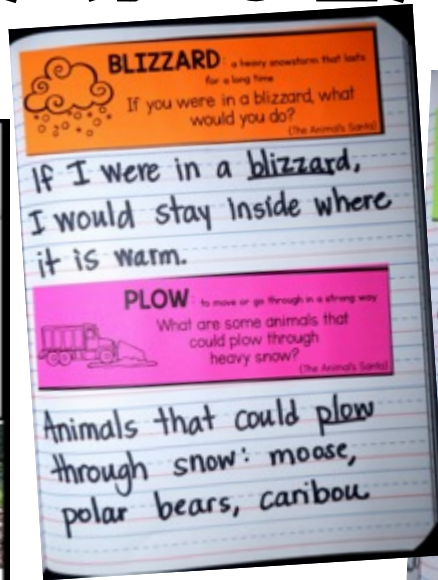 BLIZZARD: a heavy snowstorm that lasts
for a long time
If you were in a blizzard, what
would you do?
(The Animal's Santa)
If I were in a blizzard,
I would stay inside where
it is warm.
PLOW: to move or go through in a strong way
What are some animals that
could plow through
heavy snow?
(The Animal's Santa)
Animals that could plow
through snow: moose,
polar bears, caribou